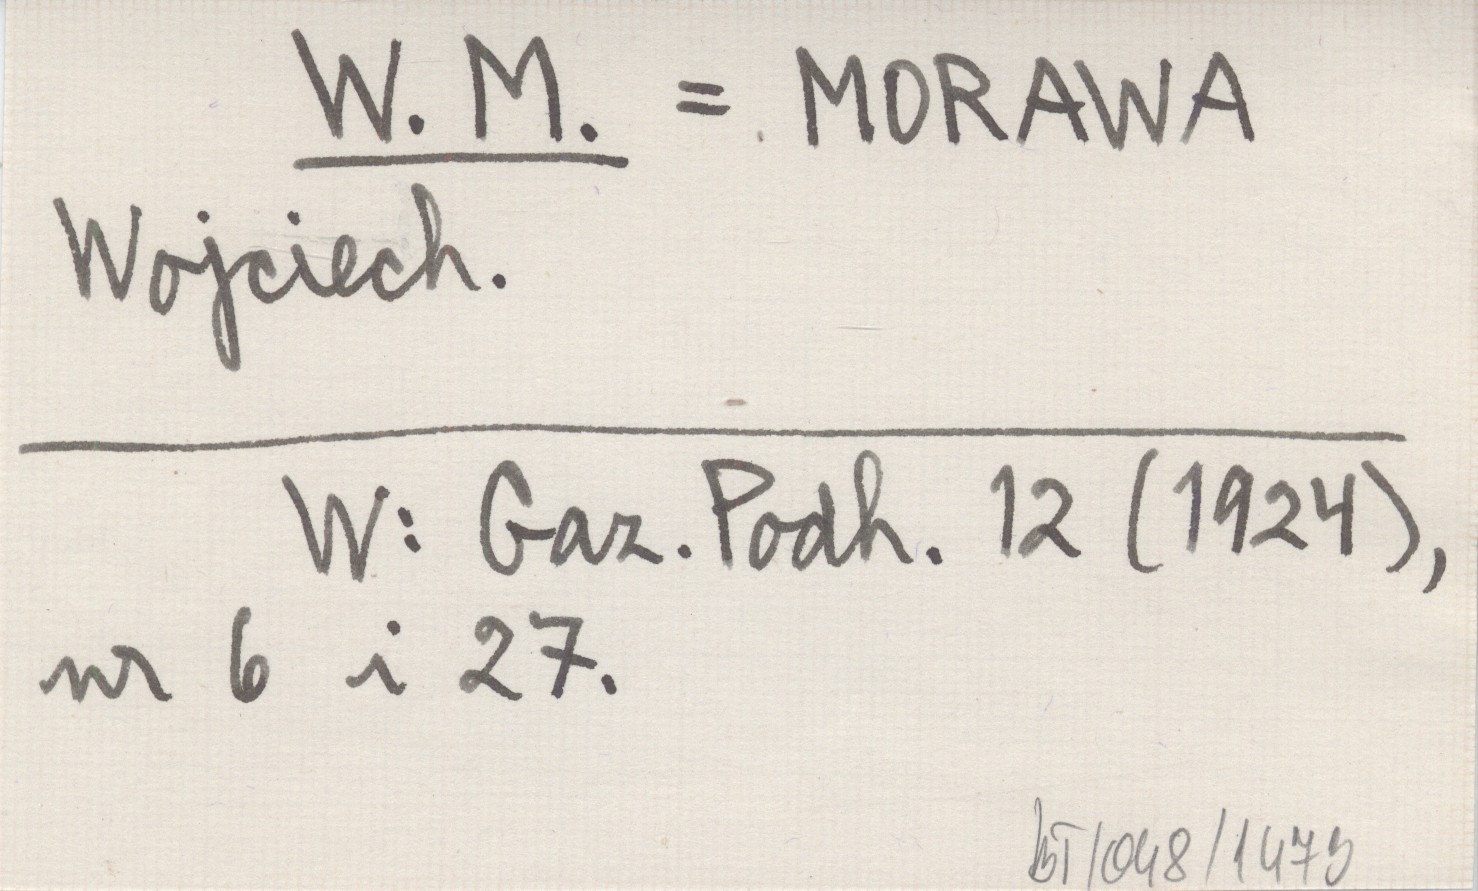 W. M. = MORAWA
Wojciech.
W: Gaz. Podh. 12 (1924),
nr 6 i 27.